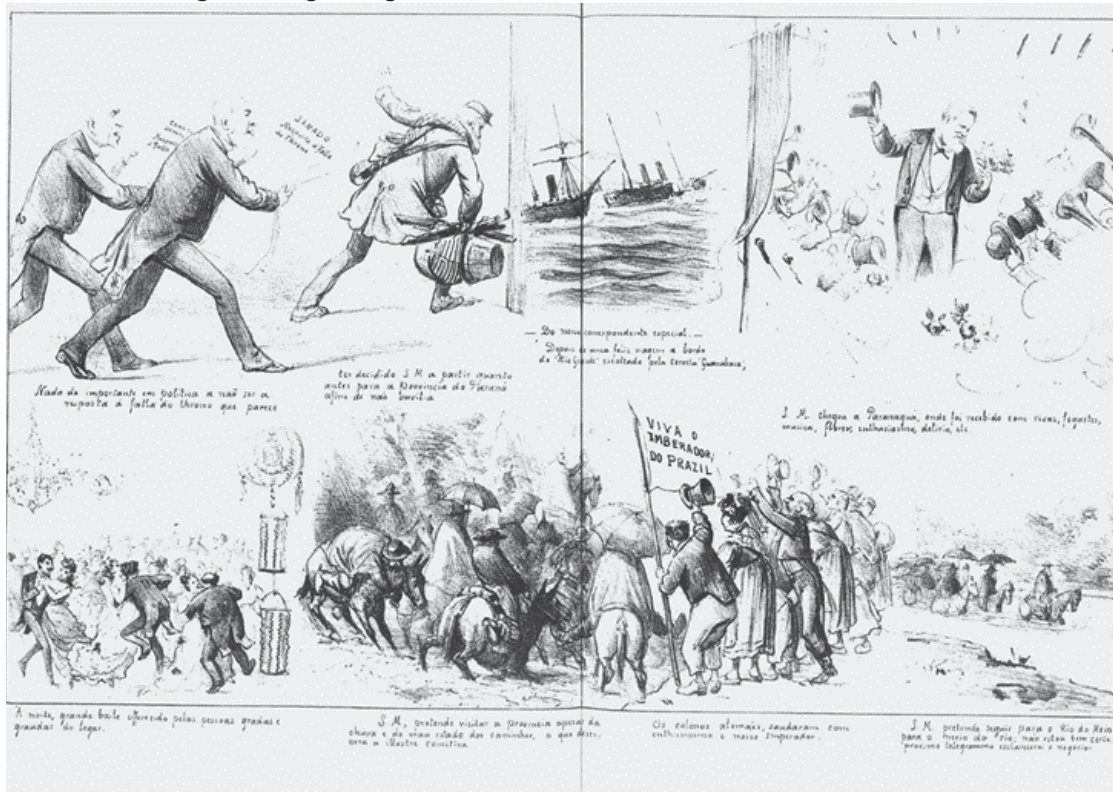 SENADO
Resposta á falla
do Throno
Nada de importante em politica a não ser a
resposta á falla do throno que parece
ter decidido S. M. a partir quanto
antes para a Provincia do Paraná
afim de não ouvil-a
— Do nosso correspondente especial. —
Depois de uma feliz viagem a bordo
do "Rio Grande" escoltado pela corveta "Guanabara",
S. M. chegou a Paranaguá, onde foi recebido com vivas, foguetes,
musica, flôres, enthusiasmo, delirio, etc
VIVA O
IMBERADOR
DO PRAZIL
A noite, grande baile offerecido pelas pessoas gradas e
graudas do logar.
S. M. pretende visitar a provincia apezar da
chuva e do máu estado dos caminhos, o que
a illustre comitiva
Os colonos alemais, saudaram com
enthusiasmo o nosso Imperador.
S. M. pretende seguir para o Rio do Meio
para o meio do rio; não estou bem certo.
proximo telegramma esclarecerá o negocio.